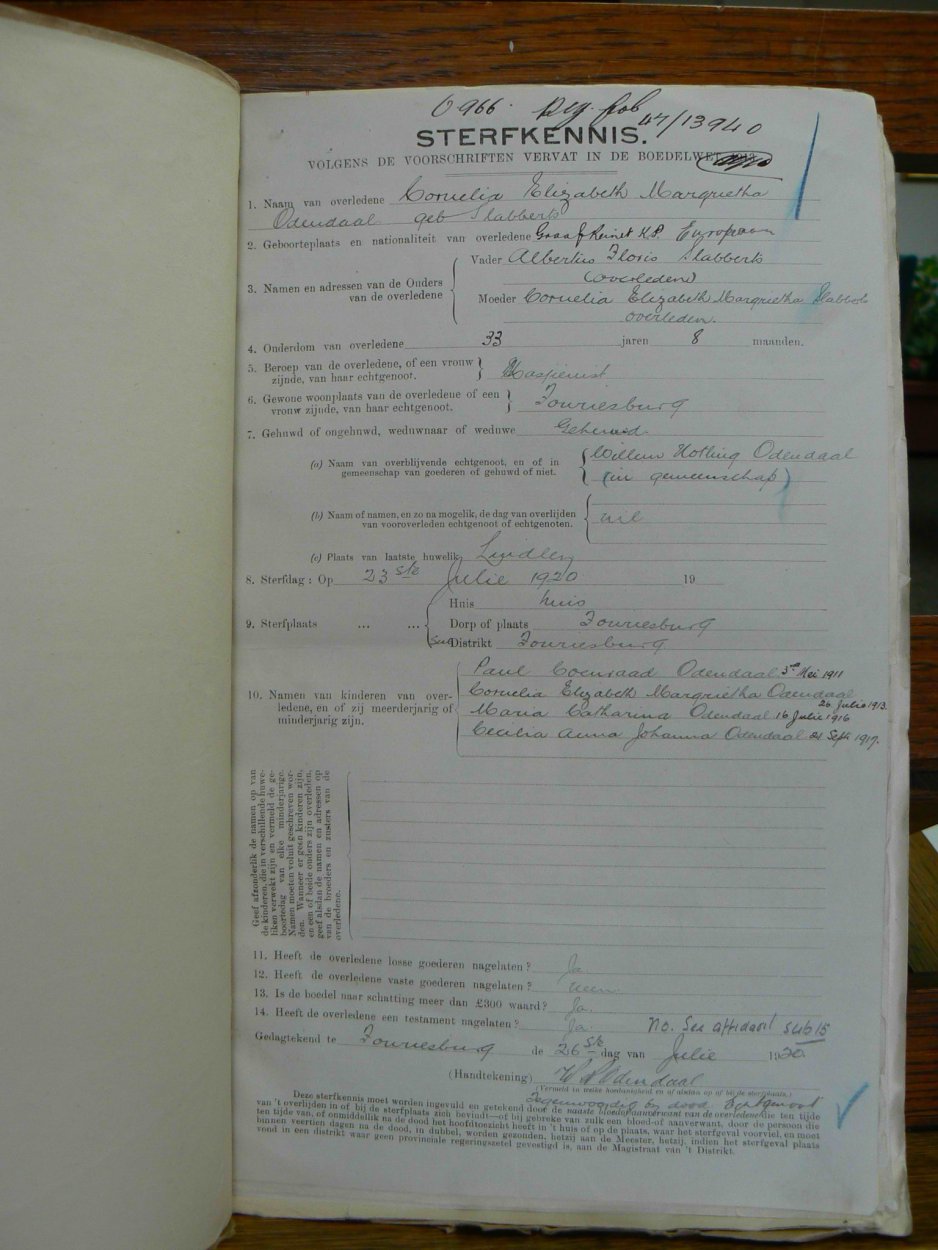 0966. Reg. fol 47/13940
STERFKENNIS.
VOLGENS DE VOORSCHRIFTEN VERVAT IN DE BOEDELWET
1. Naam van overledene Cornelia Elizabeth Margrietha
Odendaal geb Slabberts
2. Geboorteplaats en nationaliteit van overledene Graaf Reinet K.P. Europeaan
3. Namen en adressen van de Ouders van de overledene
Vader Albertus Floris Slabberts
(overleden)
Moeder Cornelia Elizabeth Margrietha Slabberts
overleden.
4. Onderdom van overledene 33 jaren 8 maanden.
5. Beroep van de overledene, of een vrouw
zijnde, van haar echtgenoot.
6. Gewone woonplaats van de overledene of een Fouriesburg
vrouw zijnde, van haar echtgenoot.
7. Gehuwd of ongehuwd, weduwnaar of weduwe Gehuwd
(a) Naam van overblijvende echtgenoot, en of in Willem Odendaal
gemeenschap van goederen of gehuwd of niet. (in gemeenschap)
(b) Naam of namen, en zo na mogelik, de dag van overlijden nil
van vooroverleden echtgenoot of echtgenoten.
(c) Plaats van laatste huwelik, Lindley
8. Sterfdag : Op 23ste Julie 1920 19
9. Sterfplaats ... ...
Huis huis
Dorp of plaats Fouriesburg
Distrikt Fouriesburg
10. Namen van kinderen van over-
ledene, en of zij meerderjarig of
minderjarig zijn.
Paul Coenraad Odendaal 3de Mei 1911
Cornelia Elizabeth Margrietha Odendaal
26 Julie 1913.
Maria Catharina Odendaal 16 Julie 1916
Cecilia Anna Johanna Odendaal 21 Sept. 1917.
Geef afzonderlik de namen op van
de kinderen, die in verschillende huwe-
liken verwekt zijn en vermeld de ge-
boortedag van elke minderjarige.
Namen moeten voluit geschreven wor-
den. Wanneer er geen kinderen zijn,
en een of beide ouders zijn overleden,
geef alsdan de namen en adressen op
van de broeders en zusters van de
overledene.
11. Heeft de overledene losse goederen nagelaten? Ja
12. Heeft de overledene vaste goederen nagelaten? neen
13. Is de boedel naar schatting meer dan £300 waard? Ja
14. Heeft de overledene een testament nagelaten? Ja no. See affidavit sub 15
Gedagtekend te Fouriesburg de 26ste dag van Julie 1920.
(Handtekening) Odendaal
(Vermeld in welke hoedanigheid en of alsdan op of bij de sterfplaats.)
Tegenwoordig bij dood. Echtgenoot
Deze sterfkennis moet worden ingevuld en getekend door de naaste bloed of aanverwant van de overledene die ten tijde
van 't overlijden in of bij de sterfplaats zich bevindt—of bij gebreke van zulk een bloed-of aanverwant, door de persoon die
ten tijde van, of onmiddellik na de dood het hoofdtoezicht heeft in 't huis of op de plaats, waar het sterfgeval voorviel, en moet
binnen veertien dagen na de dood, in dubbel, worden gezonden, hetzij aan de Meester, hetzij, indien het sterfgeval plaats
vond in een distrikt waar geen provinciale regeringszetel gevestigd is, aan de Magistraat van 't Distrikt.